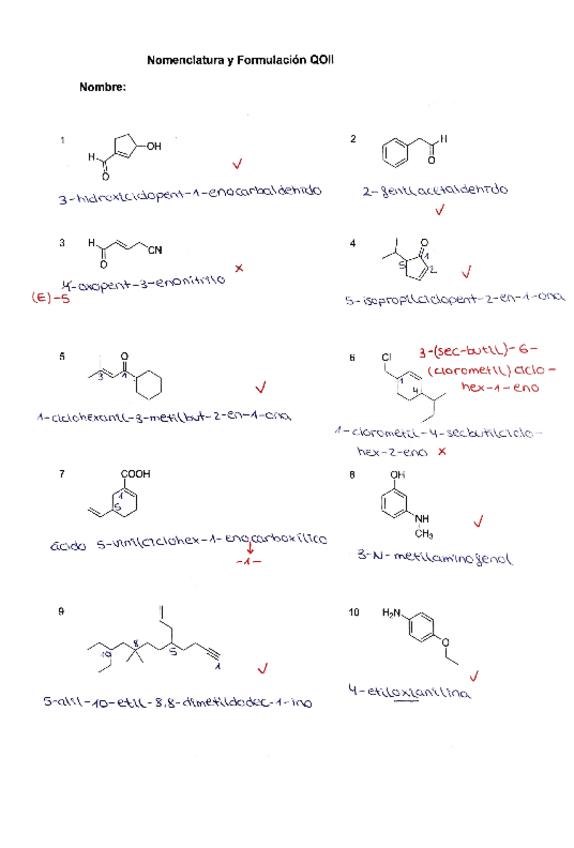 Nomenclatura y Formulación QOII
Nombre:
1
OH
H
O
✓
3-hidroxiciclopent-1-enocarbaldehído
2
H
O
2-fenilacetaldehído
✓
3
H
O
CN
x
4-oxopent-3-enonitrilo
(E)-5
4
O
1
5
2
✓
5-isopropilciclopent-2-en-1-ona
5
O
3
1
✓
1-ciclohexanil-3-metilbut-2-en-1-ona
6
Cl
1
4
3-(sec-butil)-6-
(clorometil)ciclo-
hex-1-eno
1-clorometil-4-secbutilciclo-
hex-2-eno x
7
COOH
1
5
ácido 5-vinilciclohex-1-enocarboxílico
-1-
8
OH
NH
CH3
✓
3-N-metilaminofenol
9
10
8
5
1
✓
5-alil-10-etil-8,8-dimetildodec-1-ino
10
H2N
O
✓
4-etiloxianilina